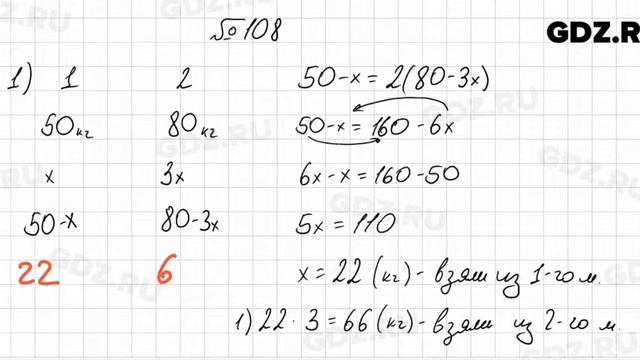 №108
GDZ.R
1) 1 2 50-x = 2(80-3x)
50кг 80кг 50-x = 160-6x
x 3x 6x-x = 160-50
50-x 80-3x 5x = 110
22 6 x = 22 (кг) - взяли из 1-го м.
1) 22 · 3 = 66 (кг) - взяли из 2-го м.